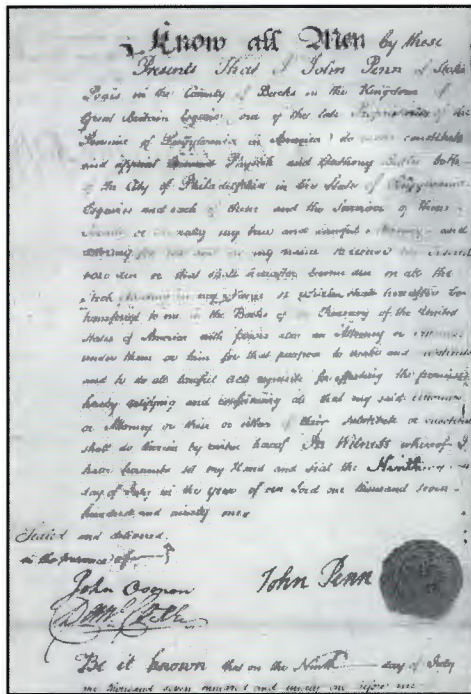 Know all Men by these
Presents That I John Penn of Stoke
Pogis in the County of Bucks in the Kingdom of
Great Britain Esquire one of the late Proprietaries of the
Province of Pennsylvania in America do constitute
and appoint Physick and Anthony Butler both
of the City of Philadelphia in the State of Pennsylvania
Esquires and each of them and the Survivor of them
my true and lawful and
for me and in my name to receive
now due or that shall hereafter become due on all the
Stock in my Name or which shall hereafter be
transferred to me in the Books of the Treasury of the United
States of America with power also an Attorney or
under them or him for that purpose to make and
and to do all lawful acts requisite for effecting the premises
hereby ratifying and confirming all that my said
or Attorney or their or either of their substitute or
shall do therein by virtue hereof In Witness whereof I
have hereunto set my Hand and Seal the Ninth
day of July in the year of our Lord one thousand seven
hundred and ninety one
Sealed and delivered
in the presence of
John Penn
John
Be it known that on the Ninth day of July
one thousand seven hundred and ninety one before me